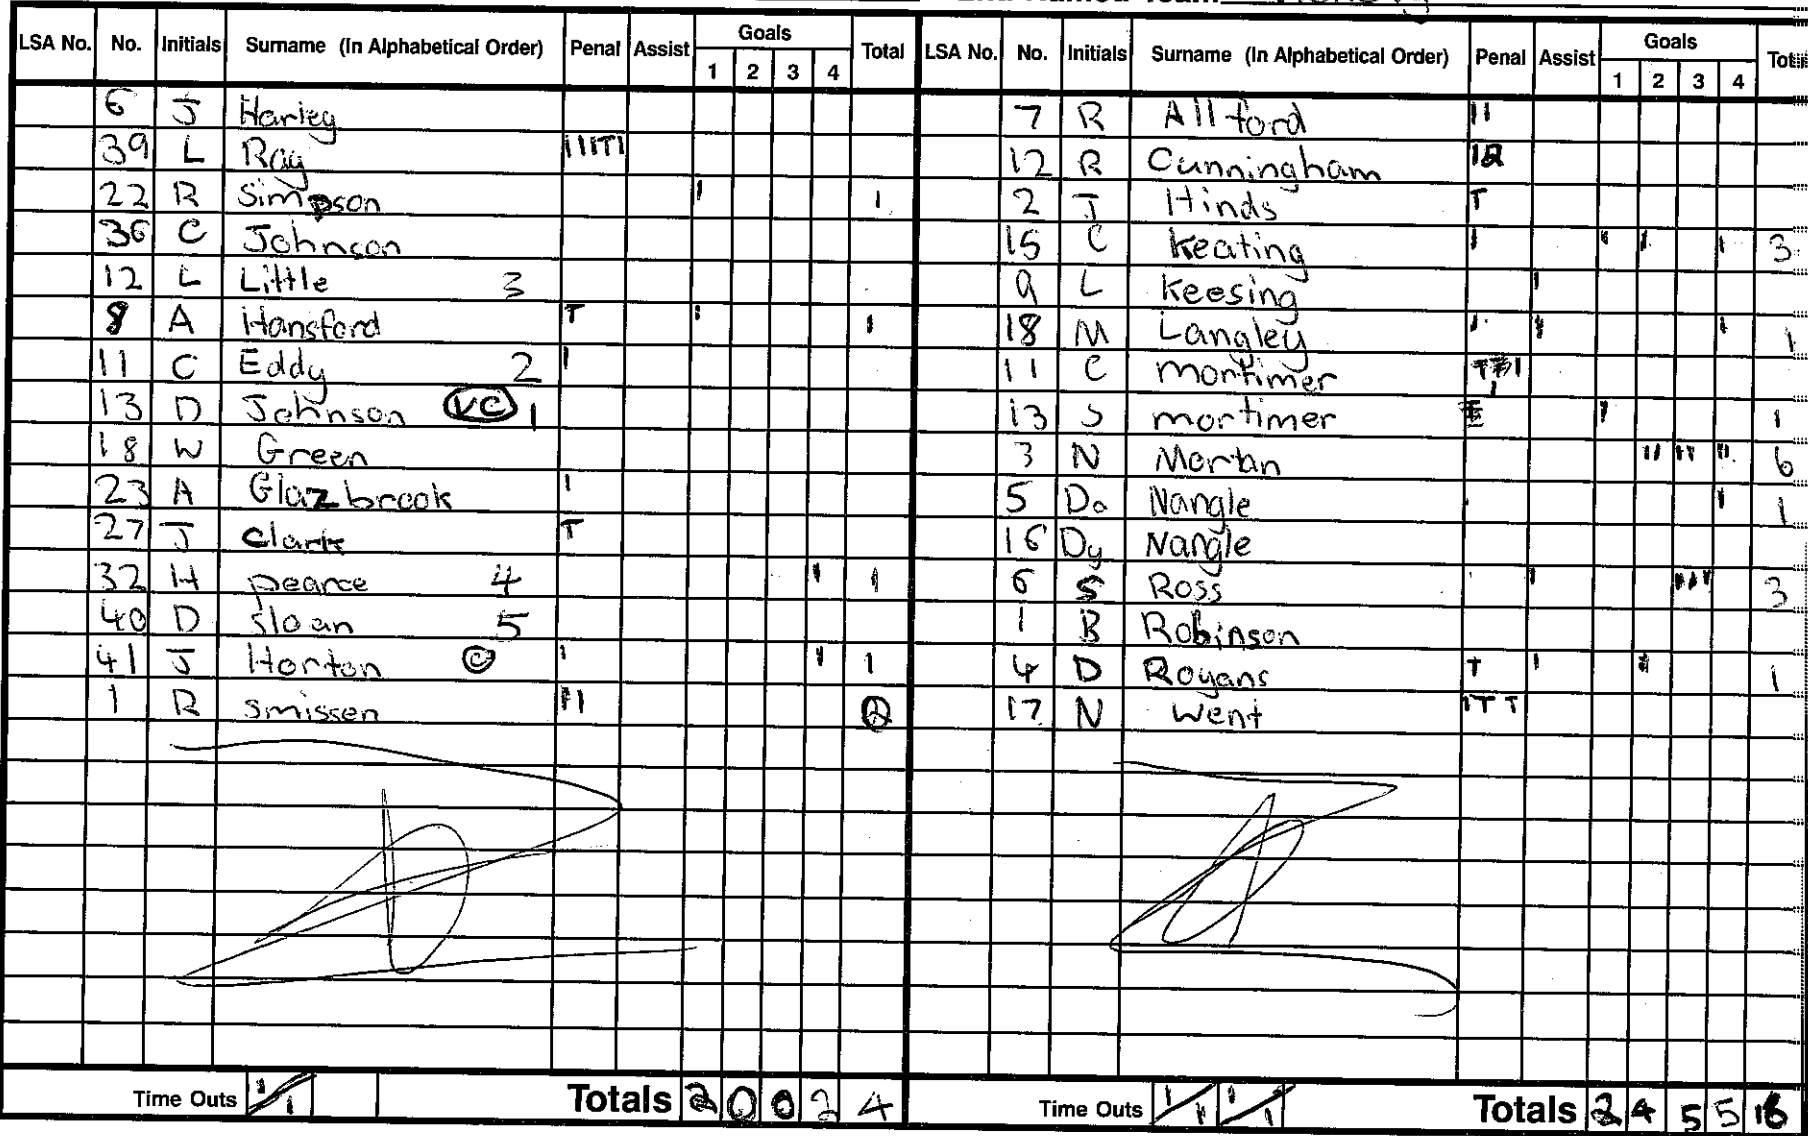 LSA No. No. Initials Surname (In Alphabetical Order) Penal Assist Goals 1 2 3 4 Total
6 J Harley
39 L Ray IIITI
22 R Simpson 1 1
36 C Johnson
12 L Little 3
8 A Hansford T 1 1
11 C Eddy 2 1
13 D Johnson VC 1
18 W Green
23 A Glazbrook 1
27 J Clark T
32 H pearce 4 1 1
40 D sloan 5
41 J Horton C 1 1 1
1 R smissen 11
Time Outs 1/1 Totals 2 0 0 2 4
LSA No. No. Initials Surname (In Alphabetical Order) Penal Assist Goals 1 2 3 4
7 R Allford 11
12 R Cunningham
2 J Hinds T
15 C Keating 1 1 1 1 3
9 L Keesing 1
18 M Langley 1 1 1 1
11 C mortimer
13 S mortimer 1 1
3 N Mortan 11 11 11 6
5 Da Nangle 1 1
16 Dy Nangle
6 S Ross 1 111 3
1 B Robinson
4 D Royans T 1 1 1
17 N Went ITT
Time Outs 1/1 1/1 Totals 2 4 5 5 16